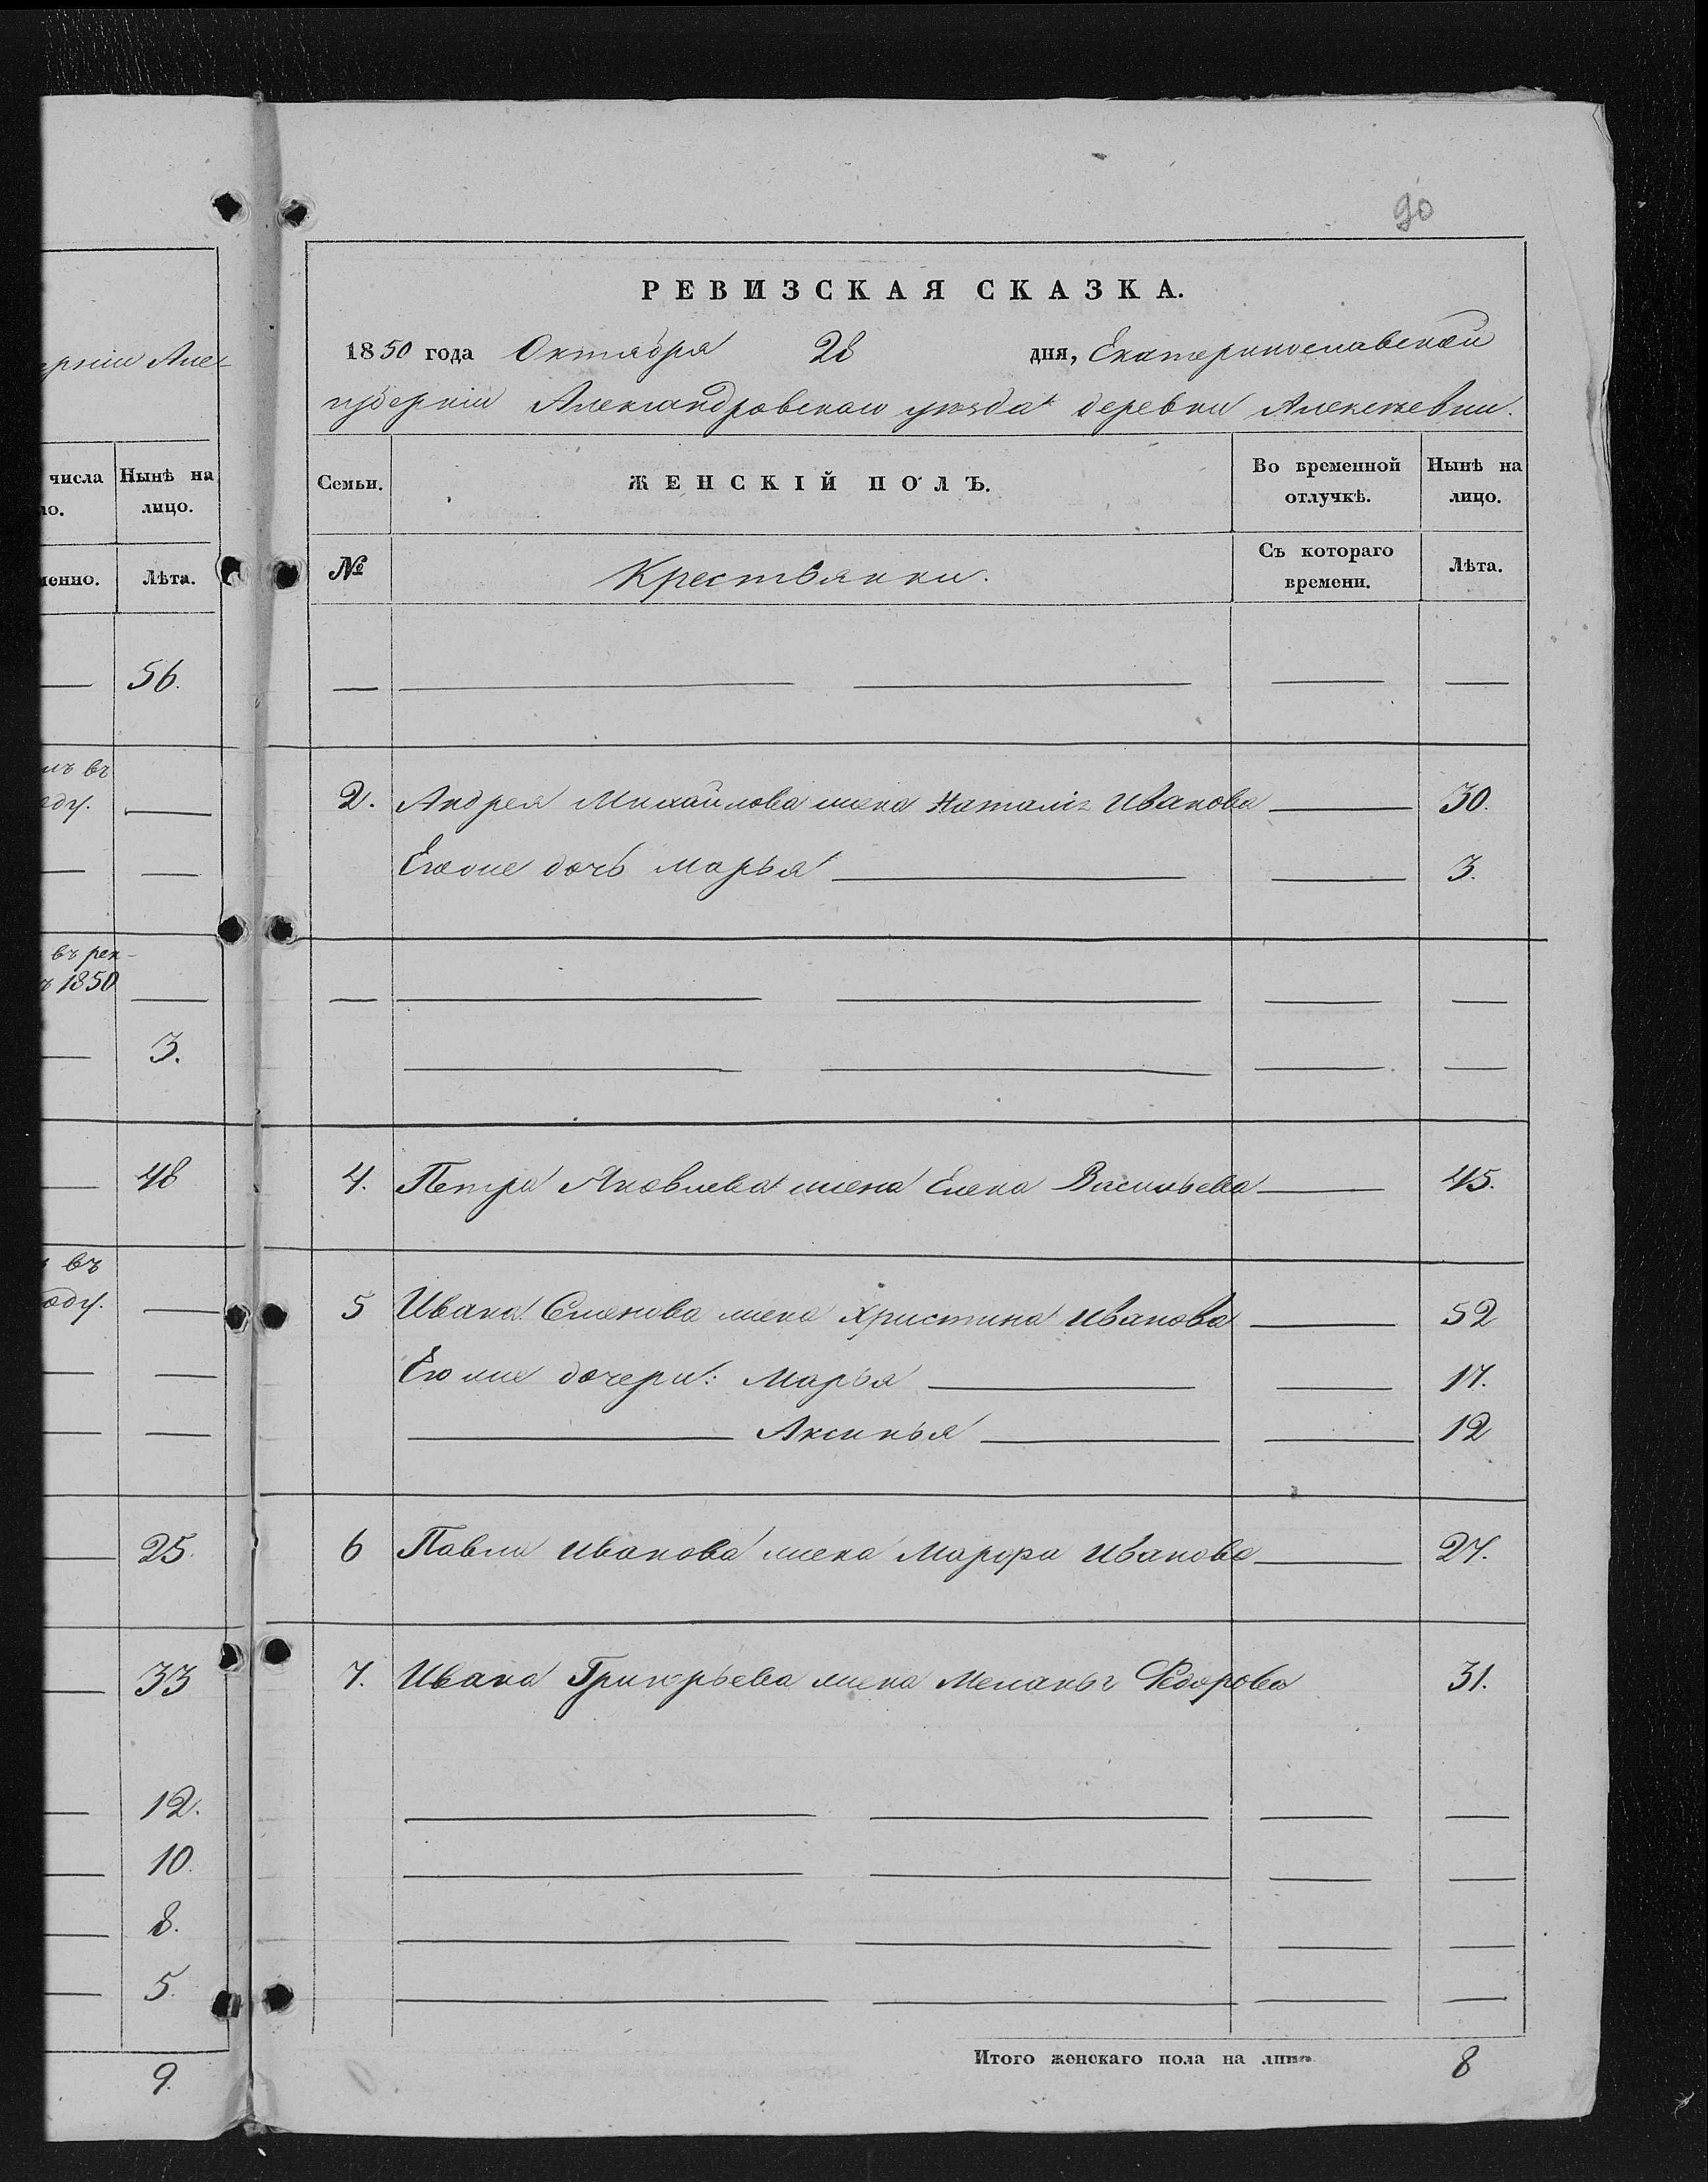 90
рніи Алек-
числа
Нынѣ на
но.
лицо.
менно.
Лѣта.
56.
въ
оду.
въ рек-
1850
3.
48
въ
оду.
25.
33
12.
10.
8.
5.
9.
РЕВИЗСКАЯ СКАЗКА.
1850 года Октября 28 дня, Екатеринославской
губерніи Александровскаго уѣзда деревни Алексѣевки.
Семьи.
ЖЕНСКІЙ ПОЛЪ.
Во временной отлучкѣ.
Нынѣ на лицо.
№
Крестьянки.
Съ котораго времени.
Лѣта.
2. Андрея Михайлова жена Наталія Иванова 30.
Егоже дочь Марья 3.
4. Петра Яковлева жена Елена Васильева 45.
5 Ивана Семенова жена Христина Иванова 52
Его же дочери: Марья 17.
Аксинья 12
6 Павла Иванова жена Марфа Иванова 27.
7. Ивана Григорьева жена Меланья Федорова 31.
Итого женскаго пола на лицо 8